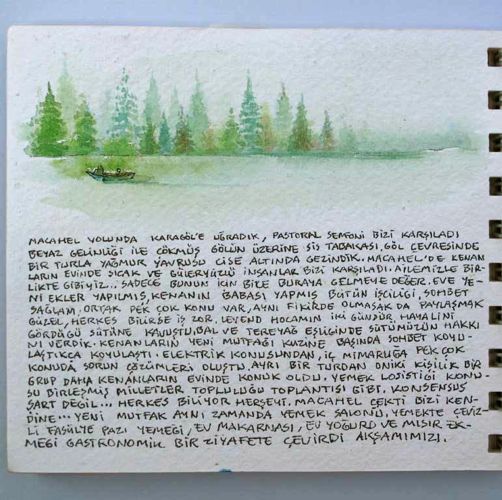 MACAHEL YOLUNDA KARAGÖL'E UĞRADIK, PASTORAL SENFONİ BİZİ KARŞILADI
BEYAZ GELİNLİĞİ İLE ÇÖKMÜŞ GÖLÜN ÜZERİNE SİS TABAKASI. GÖL ÇEVRESİNDE
BİR TURLA YAĞMUR YAVRUSU ÇİSE ALTINDA GEZİNDİK. MACAHEL'DE KENAN
LARIN EVİNDE SICAK VE GÜLERYÜZLÜ İNSANLAR BİZİ KARŞILADI. AİLEMİZLE BİR-
LİKTE GİBİYİZ... SADECE BUNUN İÇİN BİLE BURAYA GELMEYE DEĞER. EVE YE-
Nİ EKLER YAPILMIŞ, KENANIN BABASI YAPMIŞ BÜTÜN İŞÇİLİĞİ, SOHBET
SAĞLAM; ORTAK PEK ÇOK KONU VAR, AYNI FİKİRDE OLMASAK DA PAYLAŞMAK
GÜZEL, HERKES BİLİRSE İŞ ZOR. LEVEND HOCAMIN İKİ GÜNDÜR HAYALİNİ
GÖRDÜĞÜ SÜTİNE KAVUŞTU, BAL VE TEREYAĞ EŞLİĞİNDE SÜTÜMÜZÜN HAKKI
NI VERDİK. KENANLARIN YENİ MUTFAĞI KUZİNE BAŞINDA SOHBET KOYU-
LAŞTIKCA KOYULAŞTI. ELEKTRİK KONUSUNDAN, İÇ MİMARLIĞA PEK ÇOK
KONUDA SORUN ÇÖZÜMLERİ OLUŞTU. AYRI BİR TURDAN ONİKİ KİŞİLİK BİR
GRUP DAHA KENANLARIN EVİNDE KONUK OLDU. YEMEK LOJİSTİĞİ KONU-
SU BİRLEŞMİŞ MİLLETLER TOPLULUĞU TOPLANTISI GİBİ. KONSENSUS
ŞART DEĞİL... HERKES BİLİYOR HERŞEYİ. MACAHEL ÇEKTİ BİZİ KEN-
DİNE... YENİ MUTFAK AYNI ZAMANDA YEMEK SALONU. YEMEKTE CEVİZ-
Lİ FASÜLYE PAZI YEMEĞİ, EV MAKARNASI, EV YOĞURDU VE MISIR EK-
MEĞİ GASTRONOMİK BİR ZİYAFETE ÇEVİRDİ AKŞAMIMIZI.